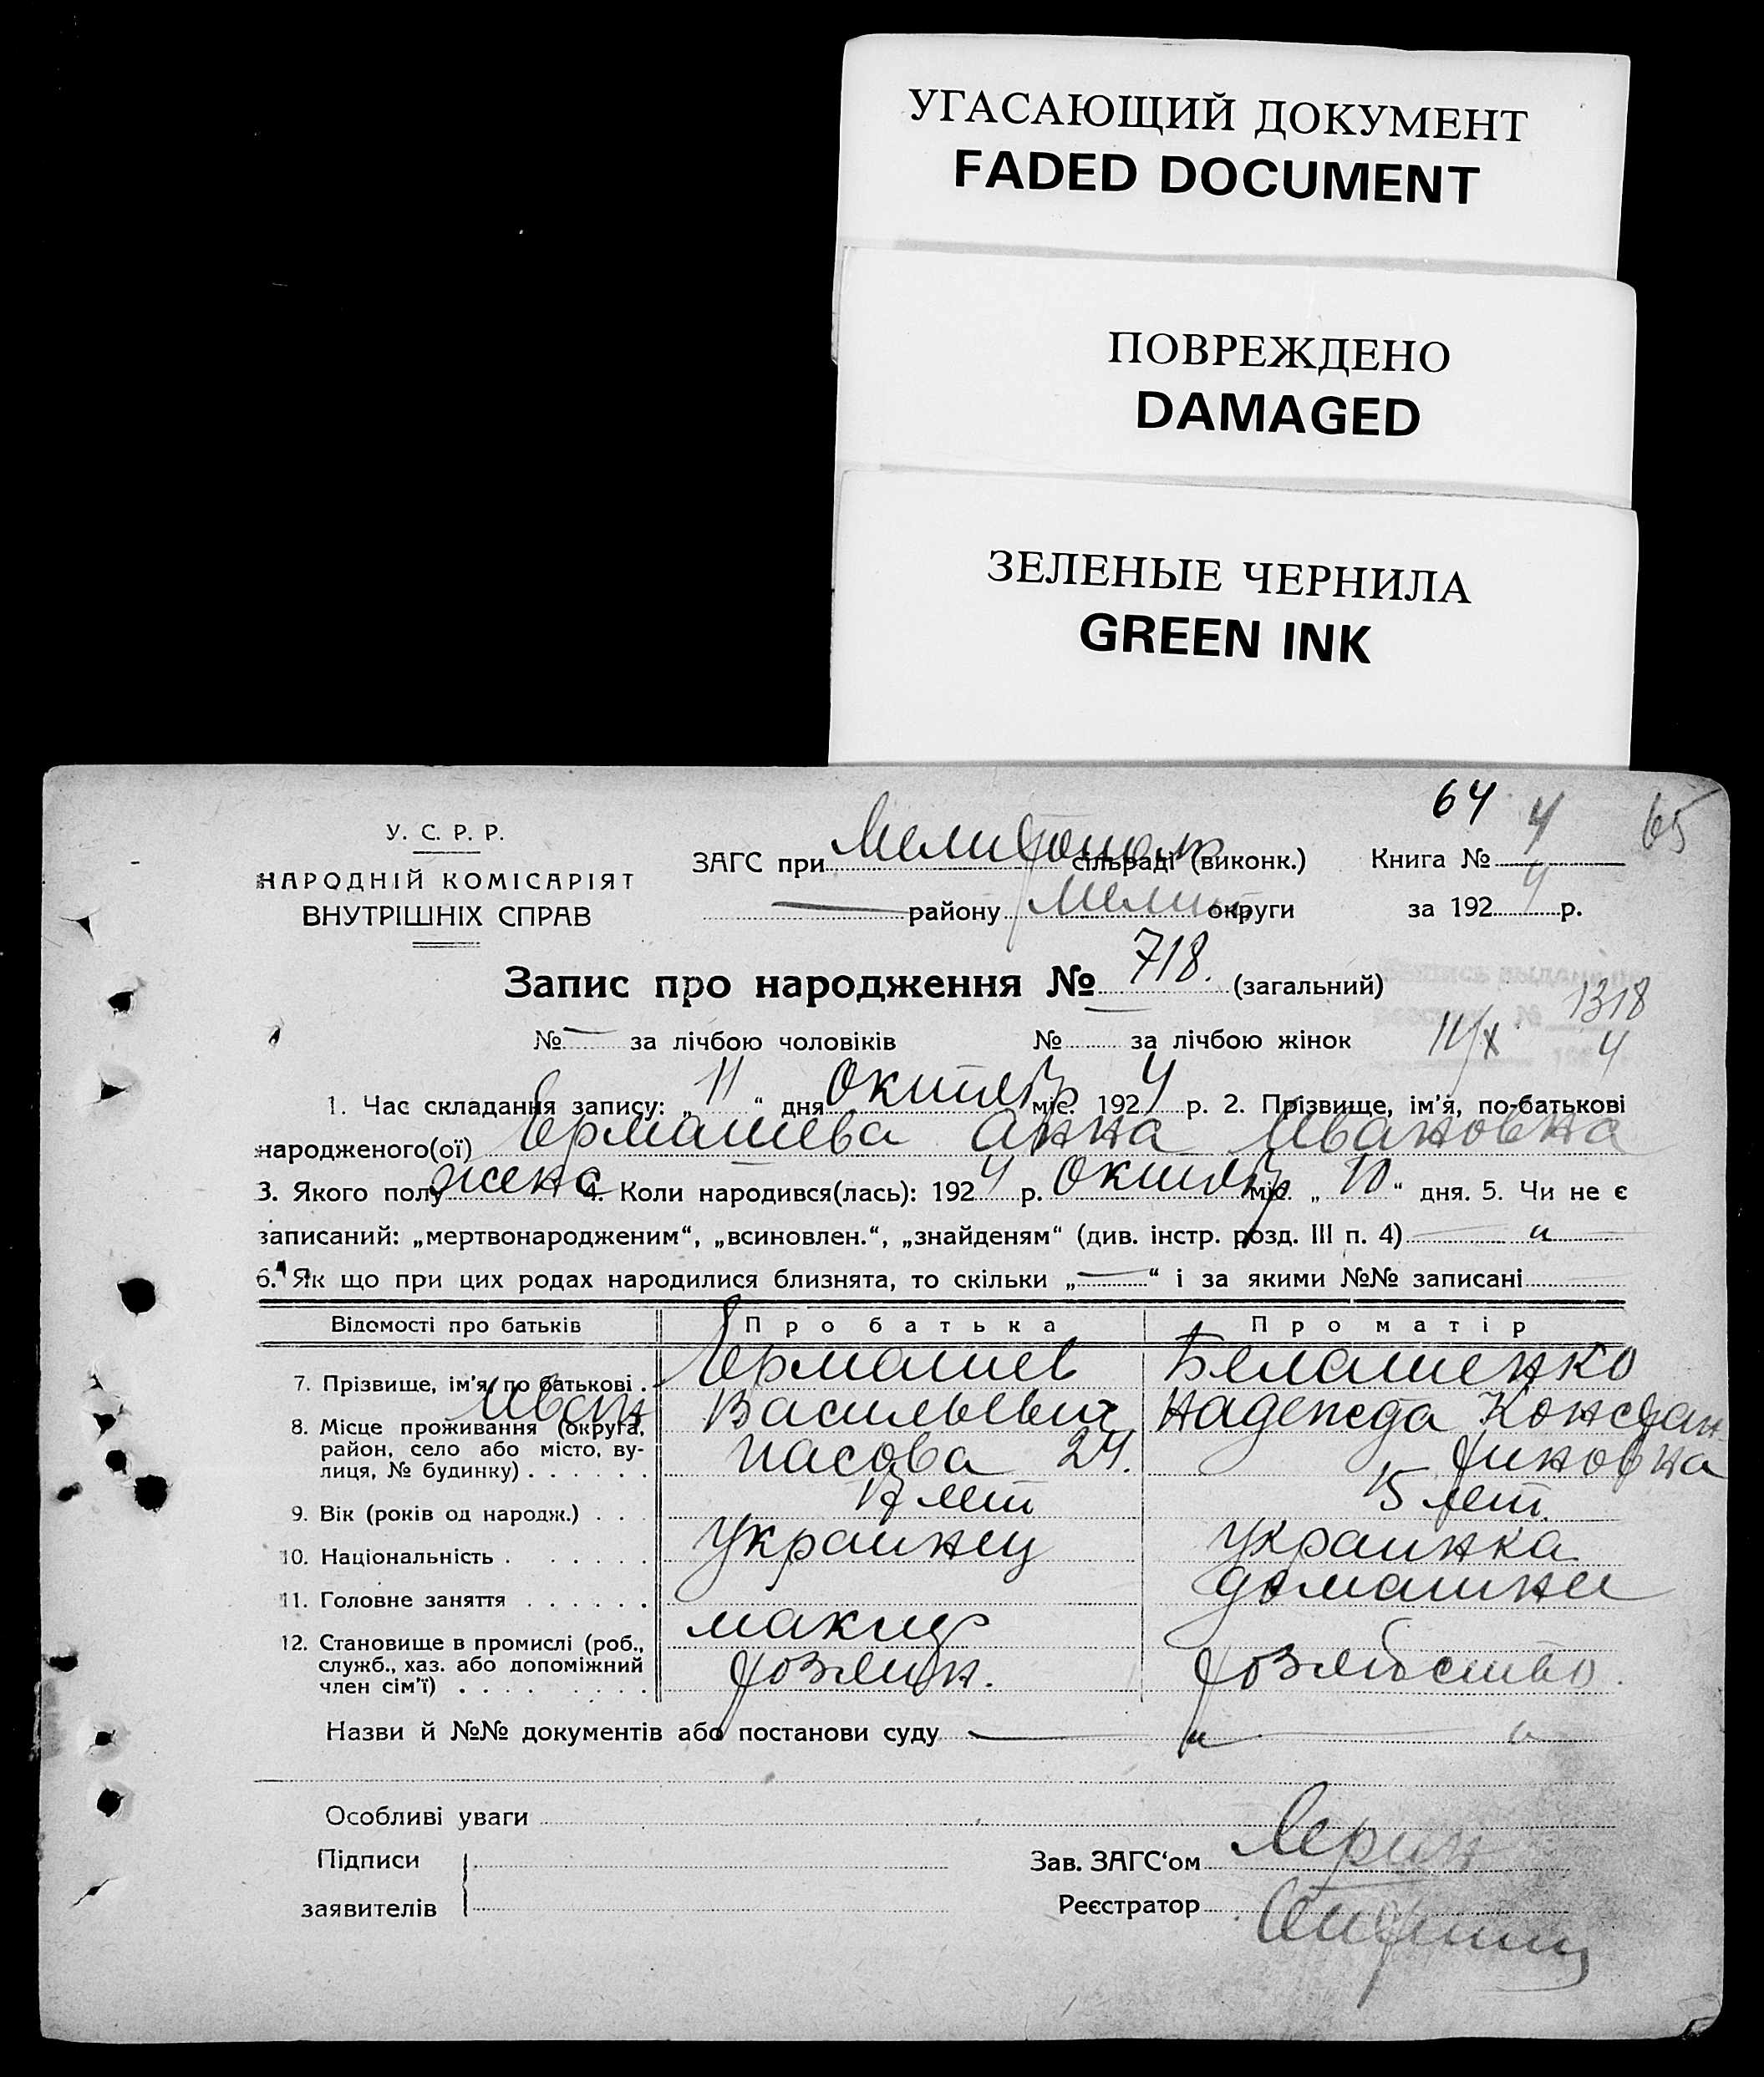 УГАСАЮЩИЙ ДОКУМЕНТ
FADED DOCUMENT
ПОВРЕЖДЕНО
DAMAGED
ЗЕЛЕНЫЕ ЧЕРНИЛА
GREEN INK
64 4 65
У. С. Р. Р.
НАРОДНІЙ КОМІСАРІЯТ
ВНУТРІШНІХ СПРАВ
ЗАГС при Мелитополь сільраді (виконк.) Книга №
— району Мелит округи за 192 4 р.
Запис про народження № 718. (загальний)
1318
№ — за лічбою чоловіків № за лічбою жінок 11/X 4
1. Час складання запису: „ 11 “ дня октябр міс. 192 4 р. 2. Прізвище, ім'я, по-батькові
народженого(ої) Ермашева Анна Ивановна
3. Якого полу женс 4. Коли народився(лась): 192 4 р. октябр міс. „ 10 “ дня. 5. Чи не є
записаний: „мертвонародженим“, „всиновлен.“, „знайденям“ (див. інстр. розд. III п. 4) — „ —
6. Як що при цих родах народилися близнята, то скільки „—“ і за якими №№ записані
Відомості про батьків Про батька Про матір
7. Прізвище, ім'я, по батькові . Ермашев Белашенко
Иван Васильевич Надежда Констан-
8. Місце проживання (округа,
район, село або місто, ву-
лиця, № будинку) . . . . . . 24. тиновна
9. Вік (років од народж.) . . . 17 лет 15 лет.
10. Національність . . . . . . украинец украинка
11. Головне заняття . . . . . . домашнее
12. Становище в промислі (роб.,
служб., хаз. або допоміжний
член сім'ї) . . . . . . . . . хозяин. хозяйство.
Назви й №№ документів або постанови суду — „ — „
Особливі уваги
Підписи
заявителів
Зав. ЗАГС‘ом
Реєстратор